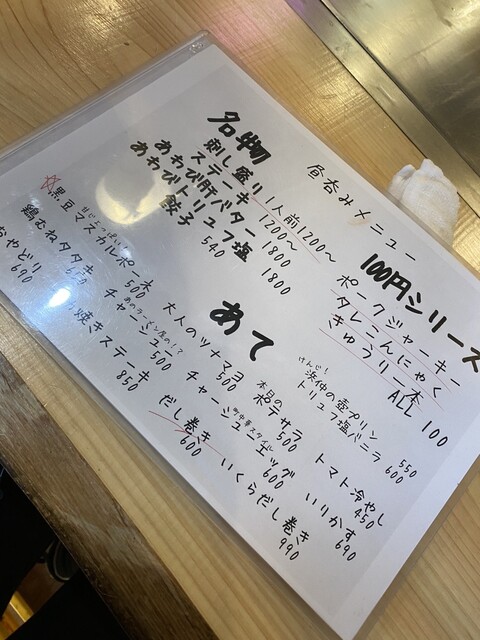 昼呑みメニュー
100円シリーズ
ポークジャーキー
タレこんにゃく
きゅうり一本
ALL 100
名物
刺し盛り 1人前1200〜
ステーキ 1200〜
あわび肝バター 1800
あわびトリュフ塩 1800
餃子 540
あて
けんじ!
浜仲の壺プリン 550
トリュフ塩バニラ 600
大人のツナマヨ 500
本日の
ポテサラ 500
トマト冷やし 450
あのラーメン屋の!?
チャーシュー 500
町中華スタイル
チャーシューエッグ 600
いりかす 690
黒豆マスカルポーネ 500
鶏むねタタキ
焼きステーキ 850
だし巻き 600
いくらだし巻き 990
おやどり 690